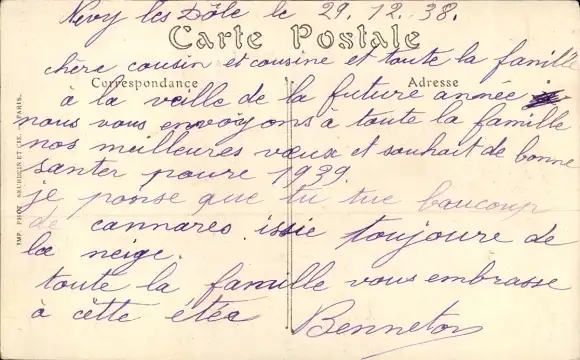 Nevy les Dôle le 29.12.38.
Carte Postale
chère cousin et cousine et toute la famille
Correspondance Adresse
à la veille de la future année
nous vous envoyons a toute la famille
nos meilleures vœux et souhait de bonne
santer poure 1939.
je panse que tu tue baucoup
de cannareo issie toujoure de
la neige.
toute la famille vous embrasse
à cette étée Benneton
IMP. PHOT. NEURDEIN ET CIE. — PARIS.